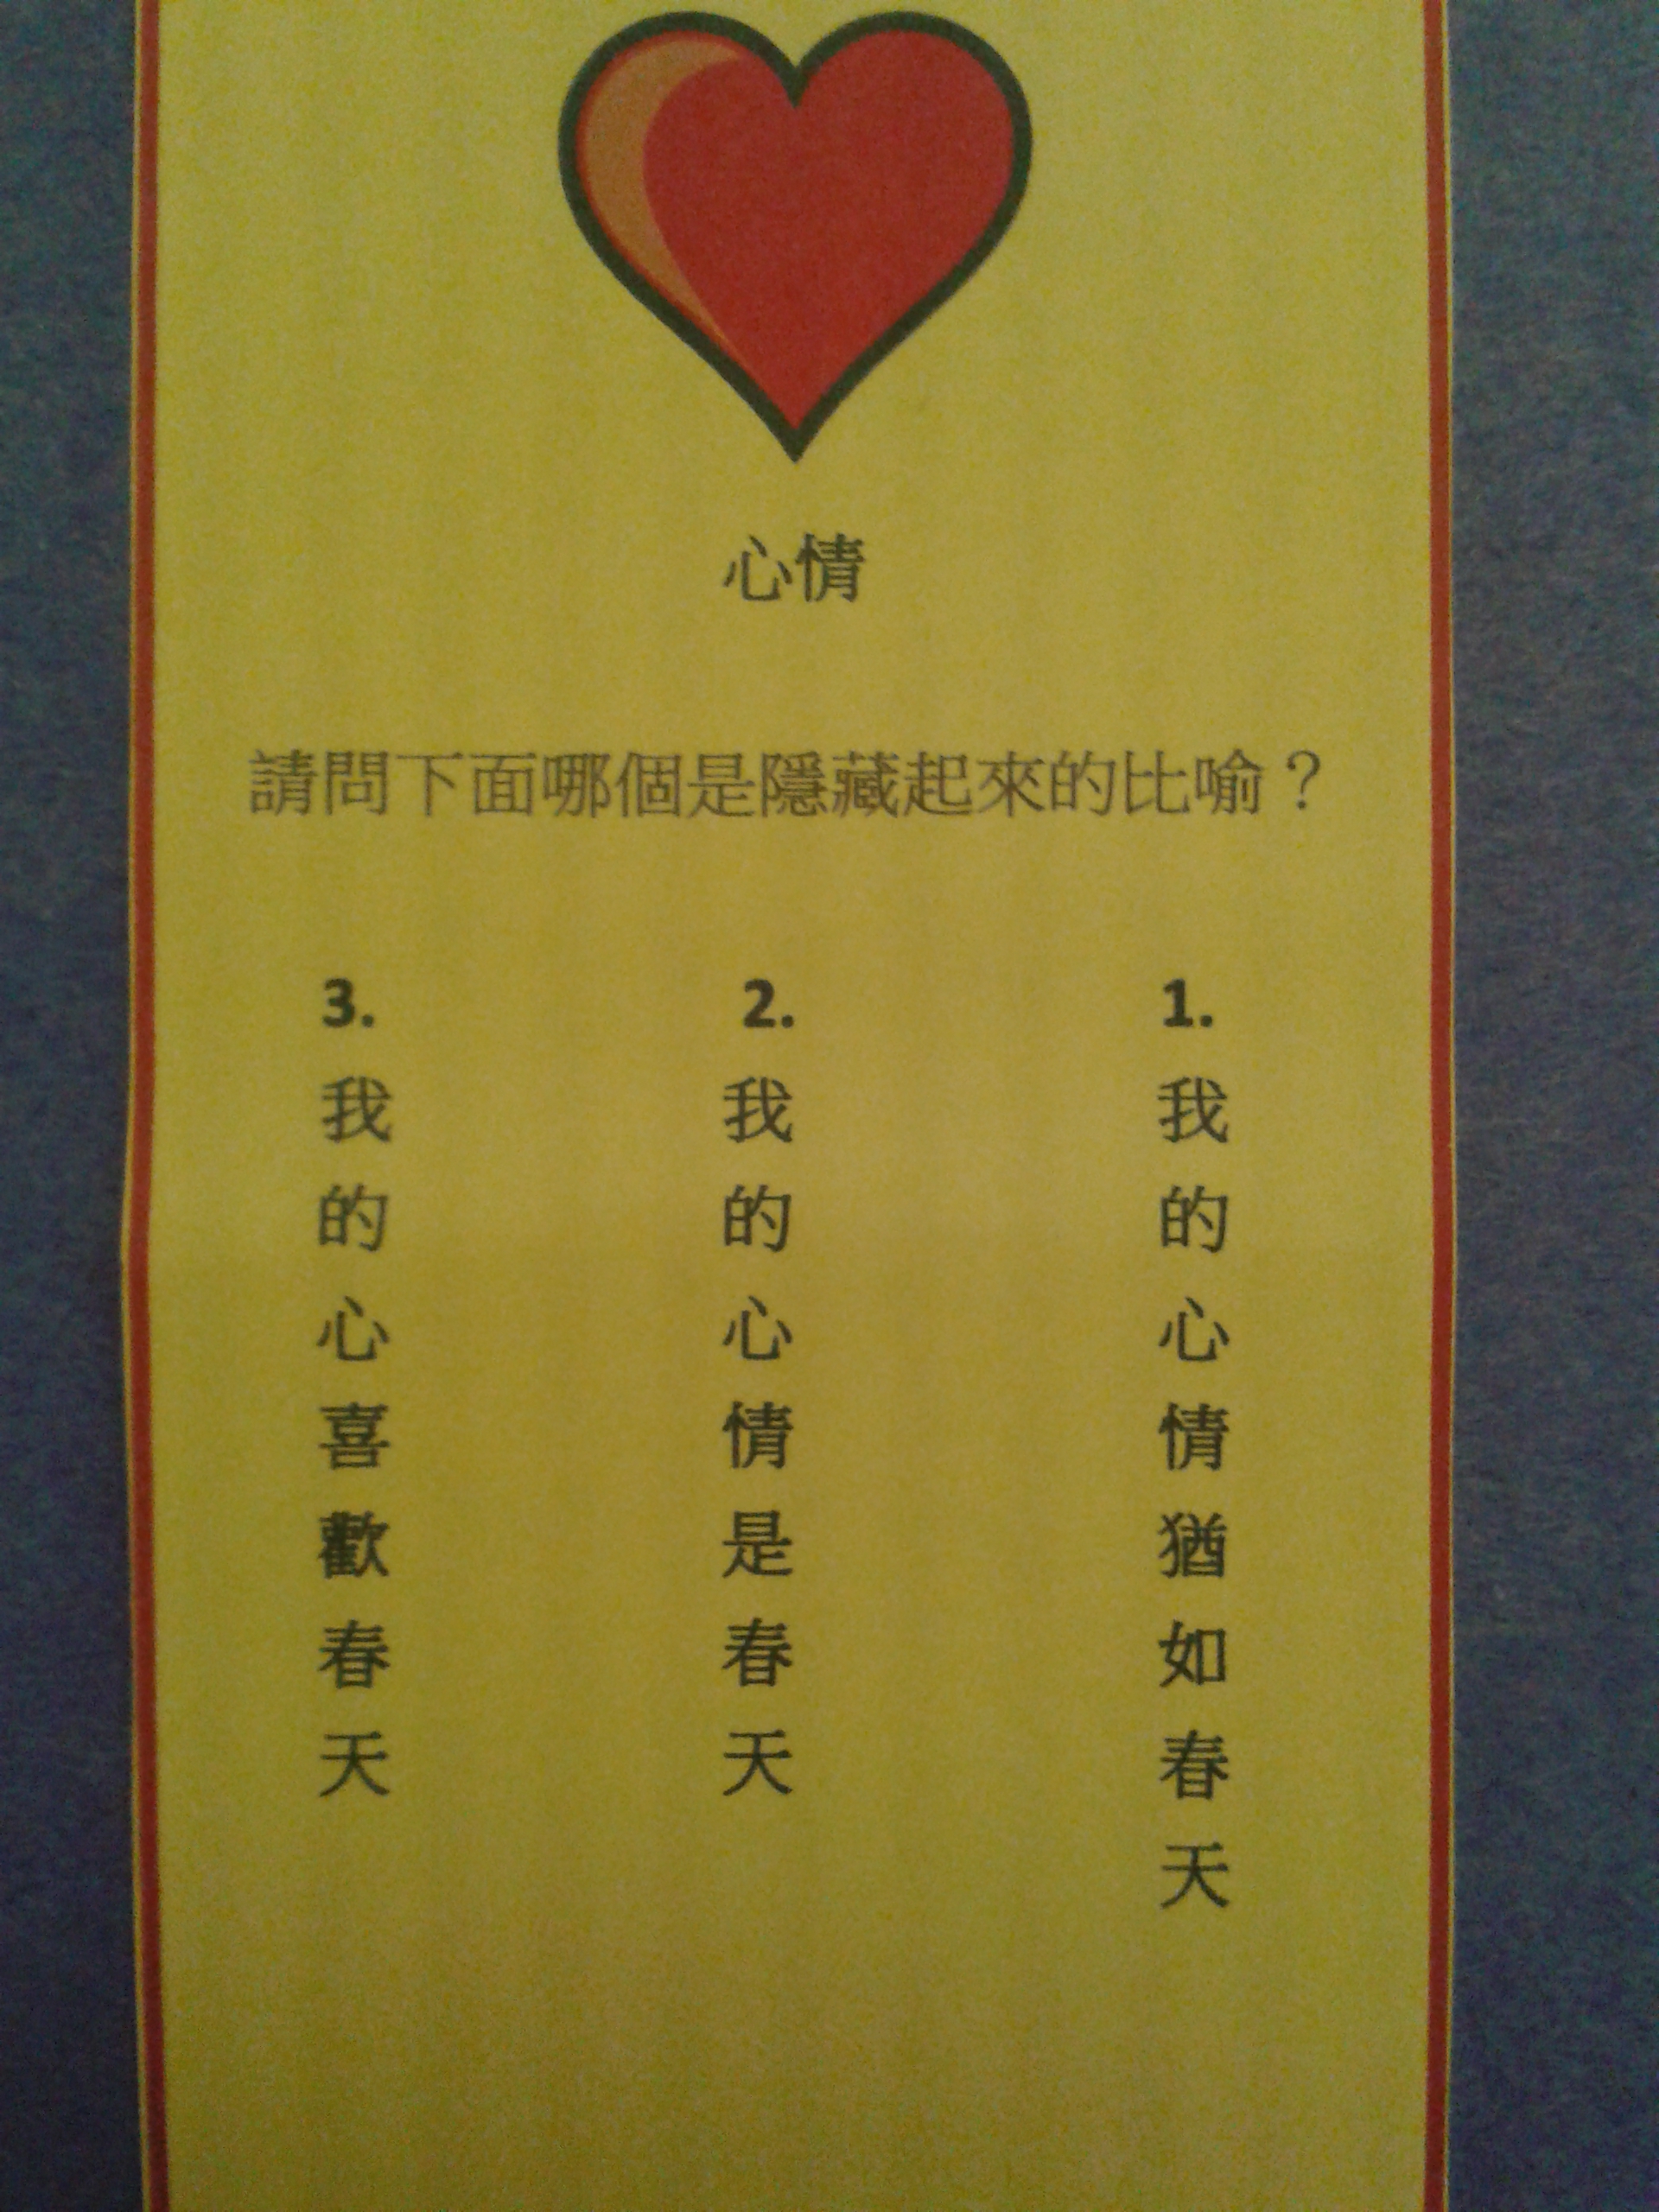 心情
請問下面哪個是隱藏起來的比喻？
1.我的心情猶如春天
2.我的心情是春天
3.我的心喜歡春天